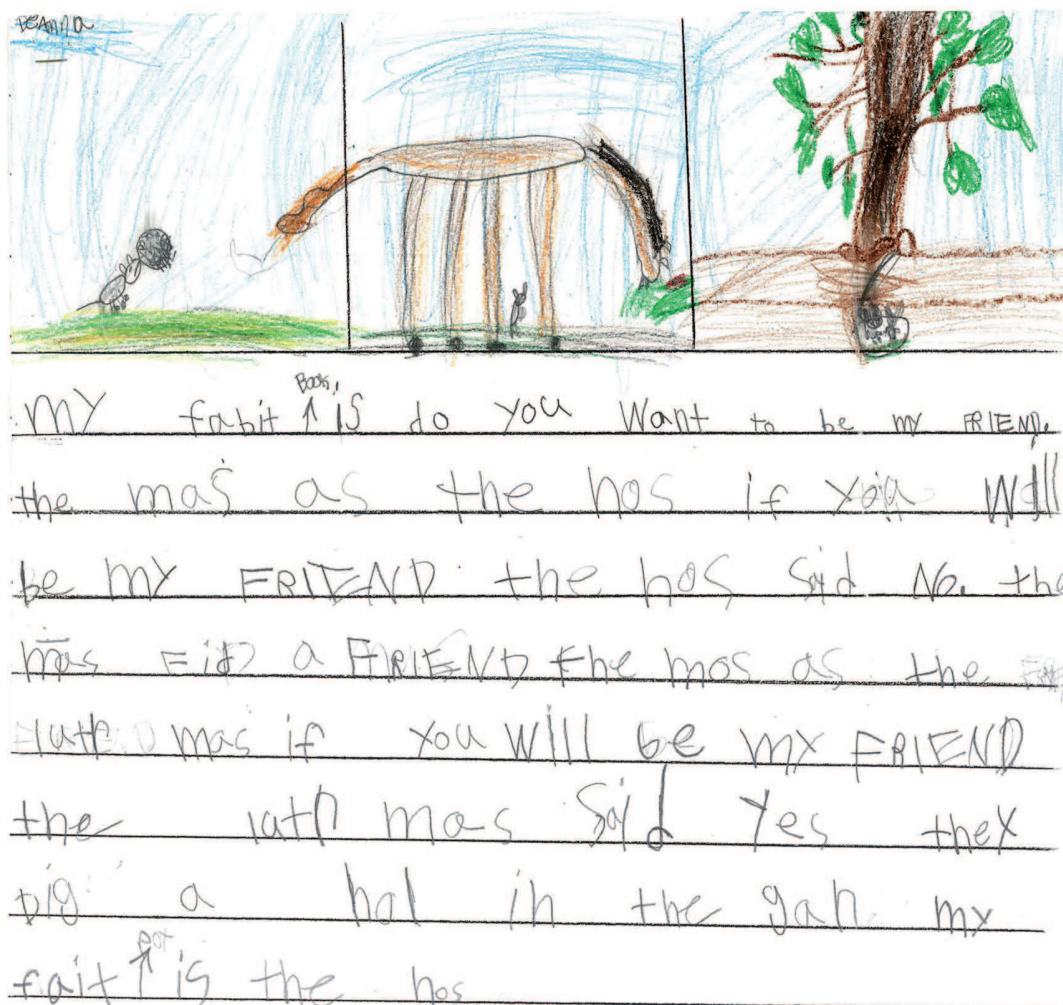 DEANNA
Book.
MY fabit ↑ is do you Want to be my FRIEND.
the mas as the hos if you Will
be MY FRIEND the hos Said No. the
mas FiD a FRIEND the mos as the
luth mas if you Will be my FRIEND
the lath mas Said Yes they
Dig a hol in the gah my
pot
fait ↑ is the hos